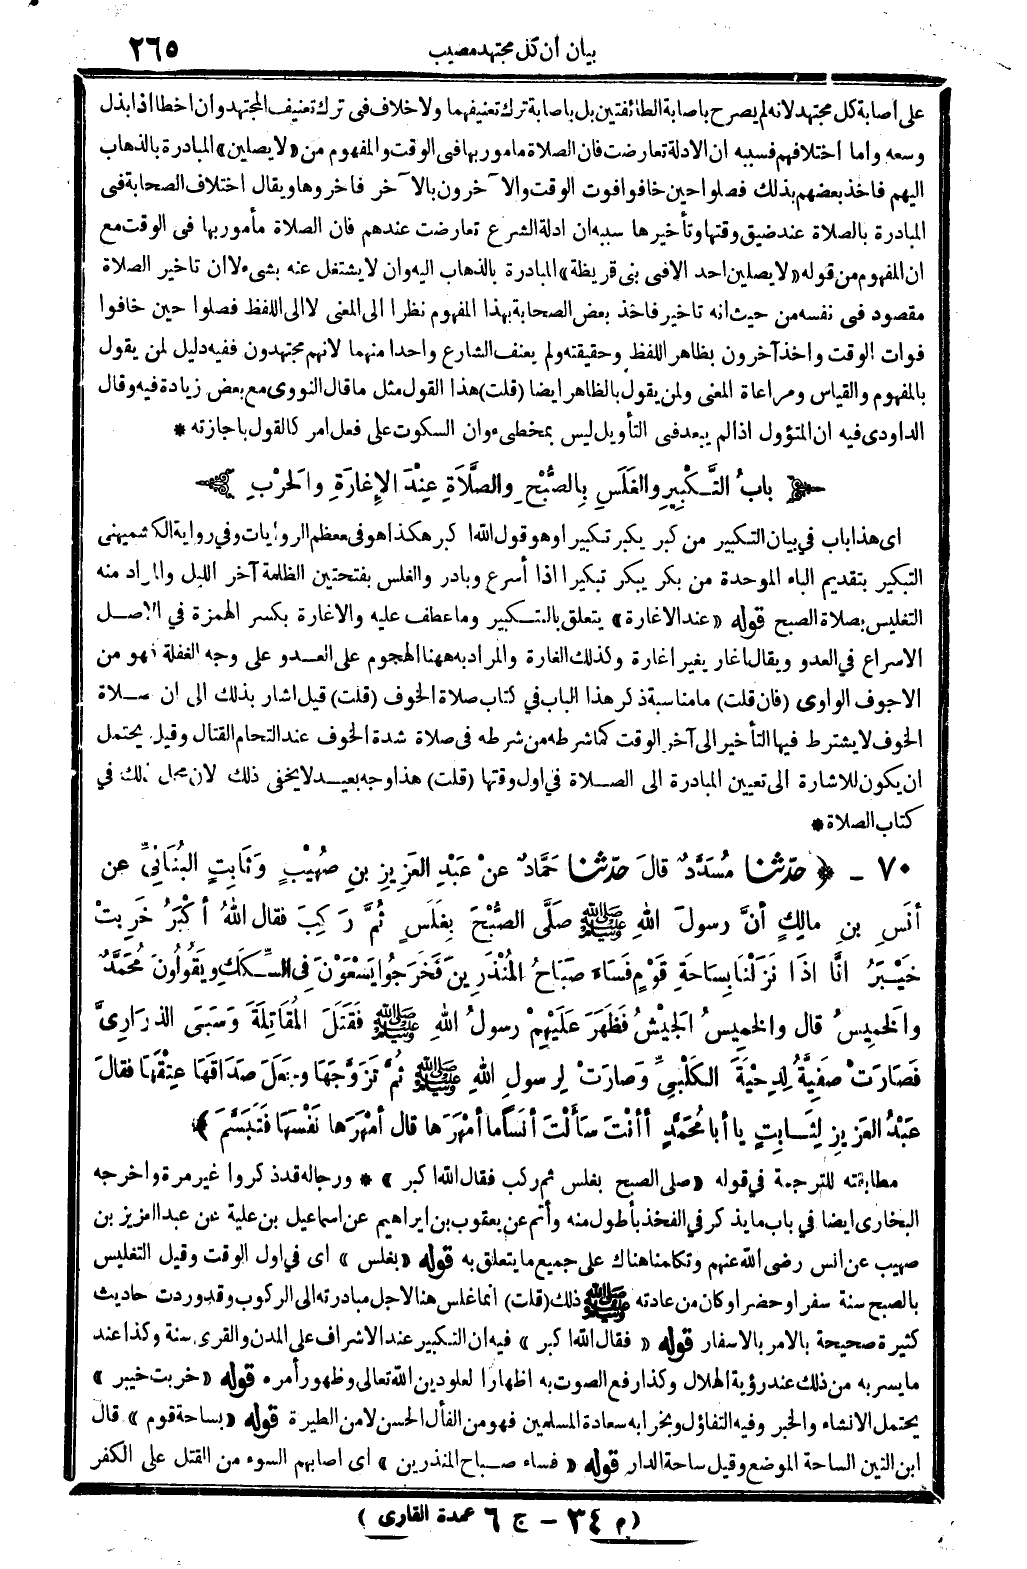 بيان أن كل مجتهد مصيب ٢٦٥
على اصابة كل مجتهد لانه لم يصرح باصابة الطائفتين بل باصابة ترك تعنيفهما ولا خلاف فى ترك تعنيف المجتهد وان اخطا اذا بذل
وسعه واما اختلافهم فسببه ان الادلة تعارضت فان الصلاة مامور بها فى الوقت والمفهوم من «لا يصلين» المبادرة بالذهاب
اليهم فاخذ بعضهم بذلك فصلوا حين خافوا فوت الوقت والآخرون بالآخر فاخروها ويقال اختلاف الصحابة فى
المبادرة بالصلاة عند ضيق وقتها وتأخيرها سببه ان ادلة الشرع تعارضت عندهم فان الصلاة مأمور بها فى الوقت مع
ان المفهوم من قوله «لا يصلين احد الا فى بنى قريظة» المبادرة بالذهاب اليه وان لا يشتغل عنه بشىء لا ان تاخير الصلاة
مقصود فى نفسه من حيث انه تاخير فاخذ بعض الصحابة بهذا المفهوم نظرا الى المعنى لا الى اللفظ فصلوا حين خافوا
فوات الوقت واخذ آخرون بظاهر اللفظ وحقيقته ولم يعنف الشارع واحدا منهما لانهم مجتهدون ففيه دليل لمن يقول
بالمفهوم والقياس ومراعاة المعنى ولمن يقول بالظاهر ايضا (قلت) هذا القول مثل ما قال النووى مع بعض زيادة فيه وقال
الداودى فيه ان المتؤول اذا لم يبعد فى التأويل ليس بمخطىء وان السكوت على فعل امر كالقول باجازته *
بابُ التَّكْبِيرِ والغَلَسِ بِالصُّبْحِ والصَّلَاةِ عِنْدَ الإِغارَةِ والحَرْبِ
اى هذا باب في بيان التكبير من كبر يكبر تكبيرا وهو قول الله اكبر هكذا هو فى معظم الروايات وفي رواية الكشميهنى
التبكير بتقديم الباء الموحدة من بكر يبكر تبكيرا اذا أسرع وبادر والغلس بفتحتين الظلمة آخر الليل والمراد منه
التغليس بصلاة الصبح قوله «عند الاغارة» يتعلق بالتكبير وما عطف عليه والاغارة بكسر الهمزة في الاصل
الاسراع في العدو ويقال اغار يغير اغارة وكذلك الغارة والمراد به ههنا الهجوم على العدو على وجه الغفلة فهو من
الاجوف الواوى (فان قلت) ما مناسبة ذكر هذا الباب في كتاب صلاة الخوف (قلت) قيل اشار بذلك الى ان صلاة
الخوف لا يشترط فيها التأخير الى آخر الوقت كما شرطه من شرطه فى صلاة شدة الخوف عند التحام القتال وقيل يحتمل
ان يكون للاشارة الى تعيين المبادرة الى الصلاة في اول وقتها (قلت) هذا وجه بعيد لا يخفى ذلك لان محل ذلك في
كتاب الصلاة *
٧٠ - ﴿ حدّثنا مُسَدَّدٌ قالَ حدّثنا حَمَّادٌ عنْ عَبْدِ العَزِيزِ بنِ صُهَيْبٍ وَثَابِتٍ البُنَانِيِّ عن
أنَسِ بنِ مالِكٍ أنَّ رسولَ اللهِ ﷺ صَلَّى الصُّبْحَ بِغَلَسٍ ثُمَّ رَكِبَ فقال اللهُ أكْبَرُ خَرِبَتْ
خَيْبَرُ انَّا اذَا نَزَلْنَا بِسَاحَةِ قَوْمٍ فَسَاءَ صَبَاحُ المُنْذَرِينَ فَخَرَجُوا يَسْعَوْنَ فِى السِّكَكِ ويَقُولُونَ مُحَمَّدٌ
والخَمِيسُ قال والخمِيسُ الجَيْشُ فَظَهَرَ عَلَيْهِمْ رسولُ اللهِ ﷺ فَقَتَلَ المُقَاتِلَةَ وَسَبَى الذرَارِىَّ
فَصَارَتْ صَفِيَّةُ لِدِحْيَةَ الكَلْبِىِّ وَصارَتْ لِرسولِ اللهِ ﷺ ثُمَّ تَزَوَّجَهَا وجَعَلَ صَدَاقَهَا عِتْقَهَا فقالَ
عَبْدُ العَزِيزِ لِثَابِتٍ يا أبا مُحَمَّدٍ أأنْتَ سَألْتَ أنَساً ما أمْهَرَها قال أمْهَرَها نَفْسَهَا فَتَبَسَّمَ ﴾
مطابقته للترجمة في قوله «صلى الصبح بغلس ثم ركب فقال الله اكبر» * ورجاله قد ذكروا غير مرة واخرجه
البخارى ايضا في باب ما يذكر في الفخذ بأطول منه وأتم عن يعقوب بن ابراهيم عن اسماعيل بن علية عن عبد العزيز بن
صهيب عن انس رضى الله عنهم وتكلمنا هناك على جميع ما يتعلق به قوله «بغلس» اى في اول الوقت وقيل التغليس
بالصبح سنة سفرا وحضرا وكان من عادته ﷺ ذلك (قلت) انما غلس هنا لاجل مبادرته الى الركوب وقد وردت حاديث
كثيرة صحيحة بالامر بالاسفار قوله «فقال الله اكبر» فيه ان التكبير عند الاشراف على المدن والقرى سنة وكذا عند
ما يسر به من ذلك عند رؤية الهلال وكذا رفع الصوت به اظهارا لعلو دين الله تعالى وظهور أمره قوله «خربت خيبر»
يحتمل الانشاء والخبر وفيه التفاؤل وبخرابه سعادة المسلمين فهو من الفأل الحسن لا من الطيرة قوله «بساحة قوم» قال
ابن التين الساحة الموضع وقيل ساحة الدار قوله «فساء صباح المنذرين» اى اصابهم السوء من القتل على الكفر
(م ٣٤ - ج ٦ عمدة القارى)